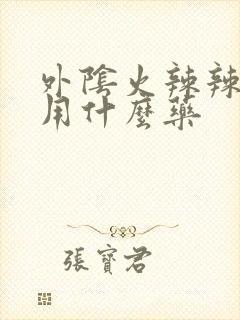 外陰火辣辣
用什麼藥
張寶君